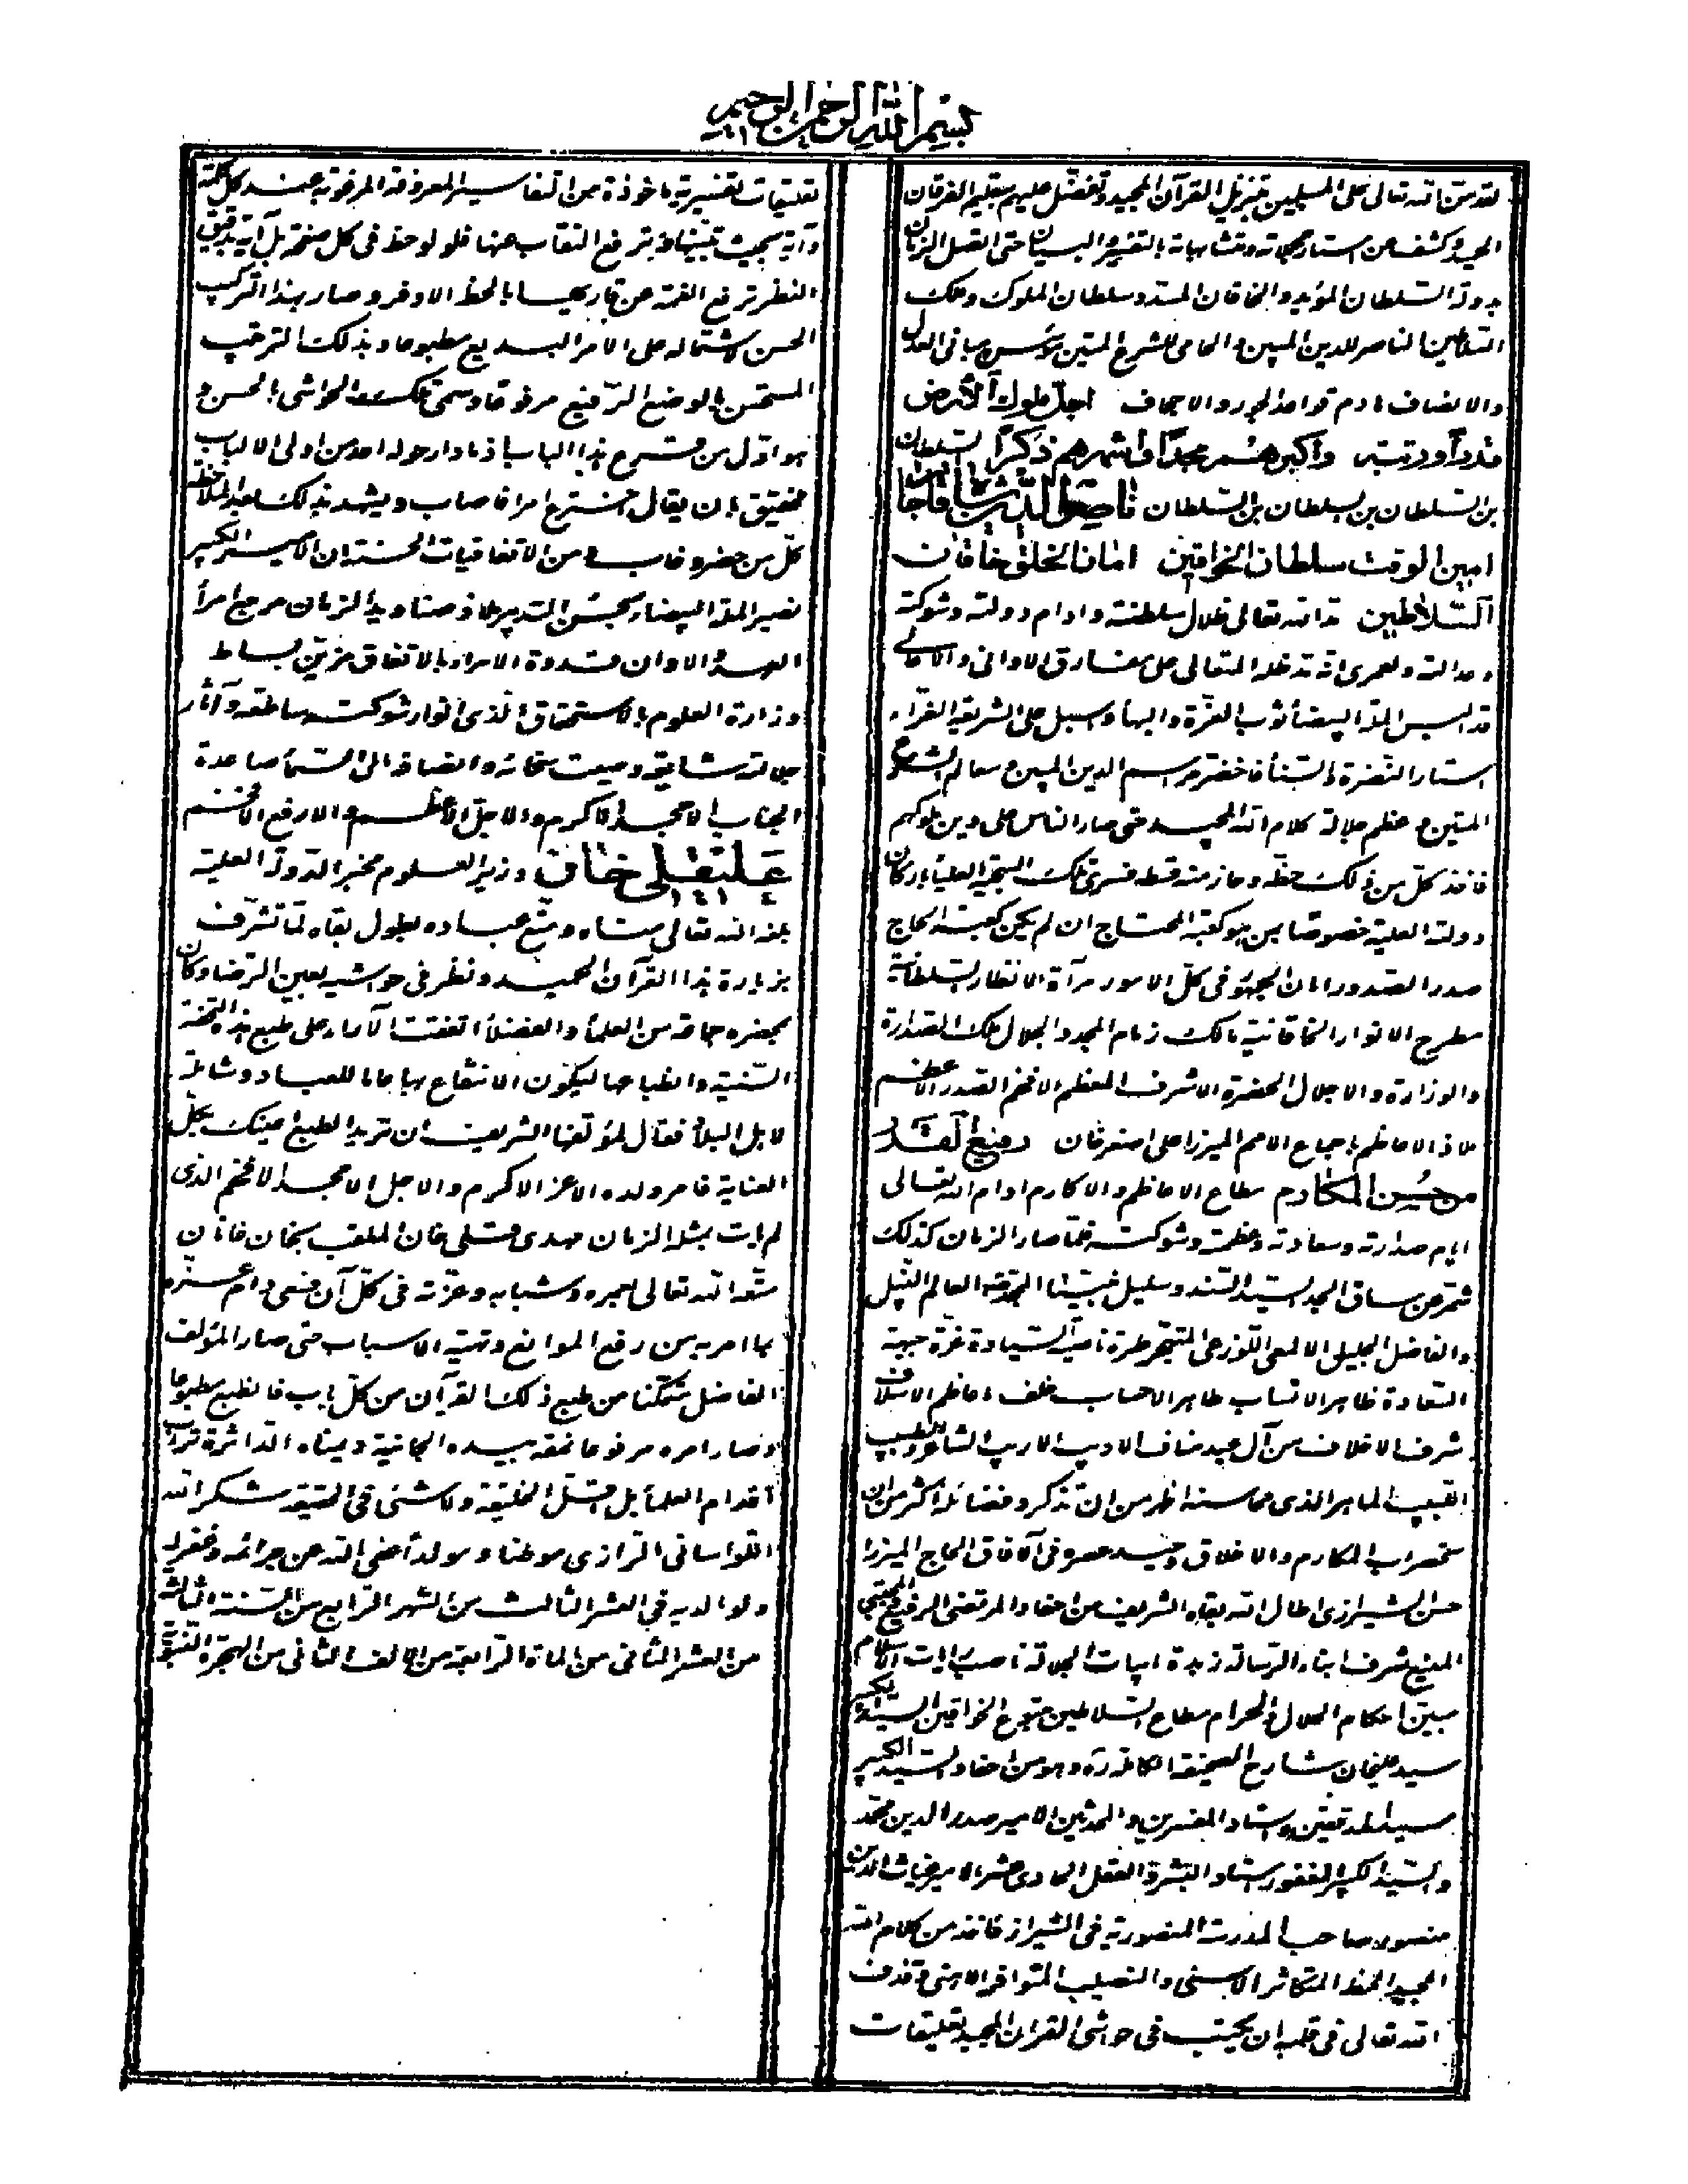 بسم الله الرحمن الرحيم
لقد من الله تعالى على المسلمين بتنزيل القرآن المجيد وتفضل عليهم بتعليم الفرقان
الحميد وكشف عن استار محكماته ومتشابهاته بالتفسير والبيان حتى اتصل الزمان
بدولة السلطان المؤيد والخاقان المسدد سلطان الملوك وملك
السلاطين الناصر للدين المبين والحامى للشرع المتين مؤسس مبانى العدل
والانصاف هادم قواعد الجور والاجحاف اجل ملوك الأرض
قدرا ورتبة واكبرهم مجدا واشهرهم ذكرا السلطان
بن السلطان بن السلطان بن السلطان ناصر الدين شاه قاجار
امين الوقت سلطان الخواقين امان الخلق خاقان
السلاطين مد الله تعالى ظلال سلطنته وادام دولته وشوكته
وعدالته ولعمرى انه مد ظله المتعالى على مفارق الادانى والاعالى
قد البس الملة البيضاء ثوب العزة والبهاء واسبل على الشريعة الغراء
استار النضرة والسناء فاخضر مراسم الدين المبين ومعالم الشرع
المتين وعظم جلالة كلام الله المجيد حتى صار الناس على دين ملوكهم
فاخذ كل من ذلك حظه وحاز منه قسطه فسرى تلك السجية العلياء باركان
دولته العلية خصوصا من هو كعبة المحتاج ان لم يكن كعبة الحاج
صدر الصدور امان الجمهور فى كل الامور مرآة الانظار السلطانية
مطرح الانوار الخاقانية مالك زمام المجد والجلال ملك الصدارة
والوزارة والاجلال الحضرة الاشرف المعظم الافخم الصدر الاعظم
ملاذ الاعاظم باجماع الامم الميرزا على اصغر خان رفيع القدر
حسن المكارم مطاع الاعاظم والاكارم ادام الله تعالى
ايام صدارته وسعادته وعظمته وشوكته فلما صار الزمان كذلك
شمر عن ساق الجد السيد السند وسليل العالم النبيل
والفاضل الجليل الالمعى اللوذعى المتبحر طرة ناصية السيادة غرة جبهة
السعادة ظاهر الانساب طاهر الاحساب خلف اعاظم الاسلاف
شرف الاخلاف من آل عبد مناف الاديب الاريب الشاعر والطبيب
اللبيب الماهر الذى محاسنه اظهر من ان تذكر وفضائله اكثر من ان
تحصر المكارم والاخلاق وحيد عصره فى الآفاق الحاج الميرزا
حسن الشيرازى اطال الله بقاه الشريف من احفاد المرتضى الرفيع المجتبى
المنيع شرف ابناء الرسالة زبدة ابيات الجلالة ناصب رايات الاسلام
مبين احكام الحلال والحرام مطاع السلاطين متبوع الخواقين السيد
سيد عليخان شارح الصحيفة الكاملة ره وهو من احفاد السيد الكبير
سيد المدققين واستاد المفسرين والمحدثين الامير صدر الدين محمد
والسيد الكبير الغفور استاد البشر والعقل الحادى عشر الامير غياث الدين
منصور صاحب المدرسة المنصورية فى الشيراز فاخذ من كلام الله
المجيد الحظ المتكاثر الاسنى والنصيب المتوافر الاهنى وقذف
الله تعالى فى قلبه ان يكتب فى حواشى القرآن المجيد تعليقات
تعليقات تفسيرية ماخوذة من التفاسير المعروفة المرقومة عند كل كلمة
وآية بحيث ترفع النقاب عنها فلو لوحظ فى كل صفحة بل آية بدقيق
النظر ترفع الغمة عن قاريها بالحظ الاوفر وصار بهذا التركيب
الحسن لاشتماله على الامر البديع مطبوعا وبذلك الترتيب
المستحسن بالوضع الرفيع مرفوعا وسمى تلك الحواشى بالحسن و
هو اول من شرع هذا الباب اذ ما دار حوله احد من اولى الالباب
فحقيق بان يقال اخترع امرا فاصاب ويشهد بذلك عند الملاحظة
كل من حضر وغاب ومن الاتفاقيات الحسنة ان الامير الكبير
نصير الملة البيضاء بحسن التدبير ملاذ صناديد الزمان مرجع امراء
العهد والاوان قدوة الامراء بالاتفاق مزين بساط
وزارة العلوم بالاستحقاق الذى انوار شوكته ساطعة وآثار
جلالته وصيت سخائه وانصافه الى السماء صاعدة
الجناب الامجد الاكرم والاجل الاعظم والارفع الافخم
عليقلى خان وزير العلوم مخبر الدولة العلية
بلغه الله تعالى مناه ومتع عباده بطول بقاه لما تشرف
بزيارة هذا القرآن المجيد ونظر فى حواشيه بعين الرضا وكان
بمحضره جماعة من العلماء والفضلاء اتفقت الآراء على طبع هذه التحفة
السنية وانطباعها ليكون الانتفاع بها عاما للعباد وشاملة
لاهل البلاد فقال لمؤلفها الشريف ان تريد الطبع نعينك بكل
العناية فامر ولده الاعز الاكرم والاجل الامجد الافخم الذى
لم يات بمثله الزمان مهدى قلى خان الملقب بخان خانان
متعه الله تعالى بعمره وشبابه وعزته فى كل آن
بما امر به من رفع الموانع وتهية الاسباب حتى صار المؤلف
الفاضل متمكنا من طبع ذلك القرآن من كل باب فانطبع مطبوعا
وصار امره مرفوعا نمقه بيده الجانية ويمناه الداثرة تراب
اقدام العلماء بل اقل الخليقة ولا شئ فى الحقيقة شكر الله
اللواسانى الرازى موطنا ومولدا عفى الله عن جرائمه وغفر له
ولوالديه فى العشر الثالث من الشهر الرابع من السنة الثالثة
من العشر الثانى من المائة الرابعة من الالف الثانى من الهجرة النبوية